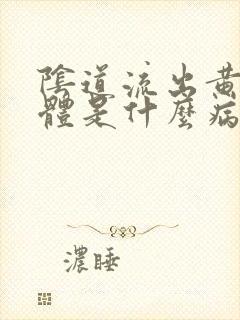 陰道流出黃
體是什麼病
濃睡